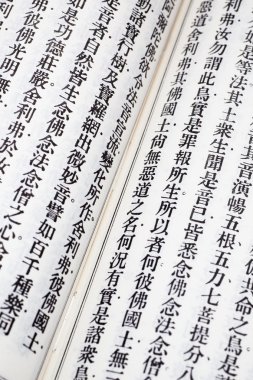 命之鳥是
音演暢五根五力七菩提分八
如是等法其土衆生聞是音已皆悉念佛念法念僧
利弗汝勿謂此鳥實是罪報所生所以者何彼佛國土無三
惡道舍利弗其佛國土尚無惡道之名何況有實是諸衆鳥
法音宣流變化所作舍利弗彼佛國土
諸寶行樹及寶羅網出微妙音譬如百千種樂同
是音者自然皆生念佛念法念僧之心
如是功德莊嚴舍利弗於汝
佛光明無